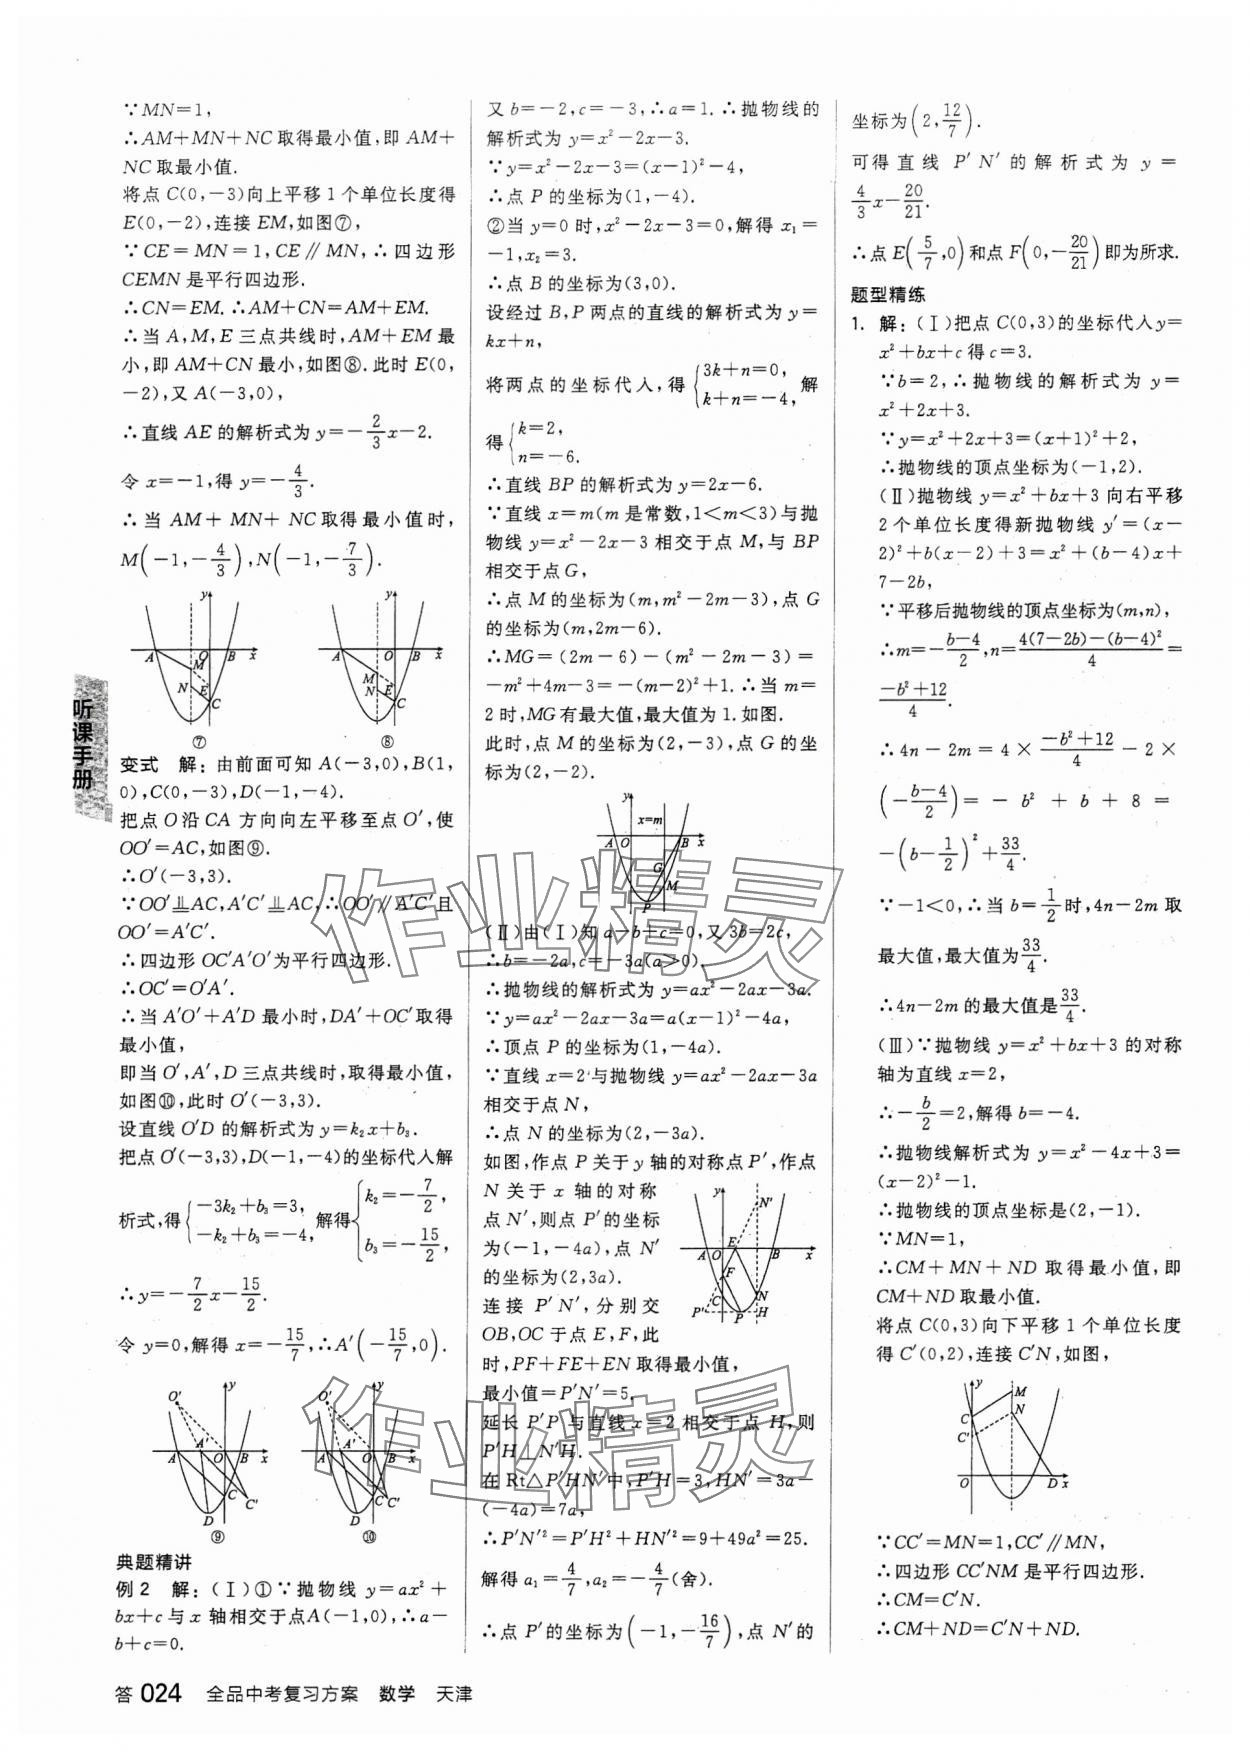 ∵MN=1,
∴AM+MN+NC取得最小值,即AM+
NC取最小值.
将点C(0,-3)向上平移1个单位长度得
E(0,-2),连接EM,如图⑦,
∵CE=MN=1,CE∥MN,∴四边形
CEMN是平行四边形.
∴CN=EM.∴AM+CN=AM+EM.
∴当A,M,E三点共线时,AM+EM最
小,即AM+CN最小,如图⑧.此时E(0,
-2),又A(-3,0),
∴直线AE的解析式为y=-2/3x-2.
令x=-1,得y=-4/3.
∴当AM+MN+NC取得最小值时,
M(-1,-4/3),N(-1,-7/3).
y
A O B x
M
N E
C
⑦
y
A O B x
M
N E
C
⑧
变式 解:由前面可知A(-3,0),B(1,
0),C(0,-3),D(-1,-4).
把点O沿CA方向向左平移至点O′,使
OO′=AC,如图⑨.
∴O′(-3,3).
∵OO′⫫AC,A′C′⫫AC,∴OO′∥A′C′且
OO′=A′C′.
∴四边形OC′A′O′为平行四边形.
∴OC′=O′A′.
∴当A′O′+A′D最小时,DA′+OC′取得
最小值,
即当O′,A′,D三点共线时,取得最小值,
如图⑩,此时O′(-3,3).
设直线O′D的解析式为y=k₂x+b₃.
把点O′(-3,3),D(-1,-4)的坐标代入解
析式,得{-3k₂+b₃=3, -k₂+b₃=-4, 解得{k₂=-7/2, b₃=-15/2,
∴y=-7/2x-15/2.
令y=0,解得x=-15/7,∴A′(-15/7,0).
O′ y
A A′ O B x
C
D C′
⑨
O′ y
A A′ O B x
C
D C′
⑩
典题精讲
例2 解:(Ⅰ)①∵抛物线y=ax²+
bx+c与x轴相交于点A(-1,0),∴a-
b+c=0.
又b=-2,c=-3,∴a=1.∴抛物线的
解析式为y=x²-2x-3.
∵y=x²-2x-3=(x-1)²-4,
∴点P的坐标为(1,-4).
②当y=0时,x²-2x-3=0,解得x₁=
-1,x₂=3.
∴点B的坐标为(3,0).
设经过B,P两点的直线的解析式为y=
kx+n,
将两点的坐标代入,得{3k+n=0, k+n=-4, 解
得{k=2, n=-6.
∴直线BP的解析式为y=2x-6.
∵直线x=m(m是常数,1<m<3)与抛
物线y=x²-2x-3相交于点M,与BP
相交于点G,
∴点M的坐标为(m,m²-2m-3),点G
的坐标为(m,2m-6).
∴MG=(2m-6)-(m²-2m-3)=
-m²+4m-3=-(m-2)²+1.∴当m=
2时,MG有最大值,最大值为1.如图.
此时,点M的坐标为(2,-3),点G的坐
标为(2,-2).
y
x=m
A O B x
G
M
P
(Ⅱ)由(Ⅰ)知a-b+c=0,又3b=2c,
∴b=-2a,c=-3a(a>0).
∴抛物线的解析式为y=ax²-2ax-3a.
∵y=ax²-2ax-3a=a(x-1)²-4a,
∴顶点P的坐标为(1,-4a).
∵直线x=2与抛物线y=ax²-2ax-3a
相交于点N,
∴点N的坐标为(2,-3a).
如图,作点P关于y轴的对称点P′,作点
N关于x轴的对称
点N′,则点P′的坐标
为(-1,-4a),点N′
的坐标为(2,3a).
连接P′N′,分别交
OB,OC于点E,F,此
y
N′
A O E B x
F
C N
P′ P H
时,PF+FE+EN取得最小值,
最小值=P′N′=5,
延长P′P与直线x=2相交于点H,则
P′H⊥N′H.
在Rt△P′HN′中,P′H=3,HN′=3a-
(-4a)=7a,
∴P′N′²=P′H²+HN′²=9+49a²=25.
解得a₁=4/7,a₂=-4/7(舍).
∴点P′的坐标为(-1,-16/7),点N′的
坐标为(2,12/7).
可得直线P′N′的解析式为y=
4/3x-20/21.
∴点E(5/7,0)和点F(0,-20/21)即为所求.
题型精练
1. 解:(Ⅰ)把点C(0,3)的坐标代入y=
x²+bx+c得c=3.
∵b=2,∴抛物线的解析式为y=
x²+2x+3.
∵y=x²+2x+3=(x+1)²+2,
∴抛物线的顶点坐标为(-1,2).
(Ⅱ)抛物线y=x²+bx+3向右平移
2个单位长度得新抛物线y′=(x-
2)²+b(x-2)+3=x²+(b-4)x+
7-2b,
∵平移后抛物线的顶点坐标为(m,n),
∴m=-(b-4)/2,n=(4(7-2b)-(b-4)²)/4=
(-b²+12)/4.
∴4n-2m=4×(-b²+12)/4-2×
(-(b-4)/2)=-b²+b+8=
-(b-1/2)²+33/4.
∵-1<0,∴当b=1/2时,4n-2m取
最大值,最大值为33/4.
∴4n-2m的最大值是33/4.
(Ⅲ)∵抛物线y=x²+bx+3的对称
轴为直线x=2,
∴-b/2=2,解得b=-4.
∴抛物线解析式为y=x²-4x+3=
(x-2)²-1.
∴抛物线的顶点坐标是(2,-1).
∵MN=1,
∴CM+MN+ND取得最小值,即
CM+ND取最小值.
将点C(0,3)向下平移1个单位长度
得C′(0,2),连接C′N,如图,
y
M
C N
C′
O D x
∵CC′=MN=1,CC′∥MN,
∴四边形CC′NM是平行四边形.
∴CM=C′N.
∴CM+ND=C′N+ND.
听课手册
作业精灵
作业精灵
答 024 全品中考复习方案 数学 天津